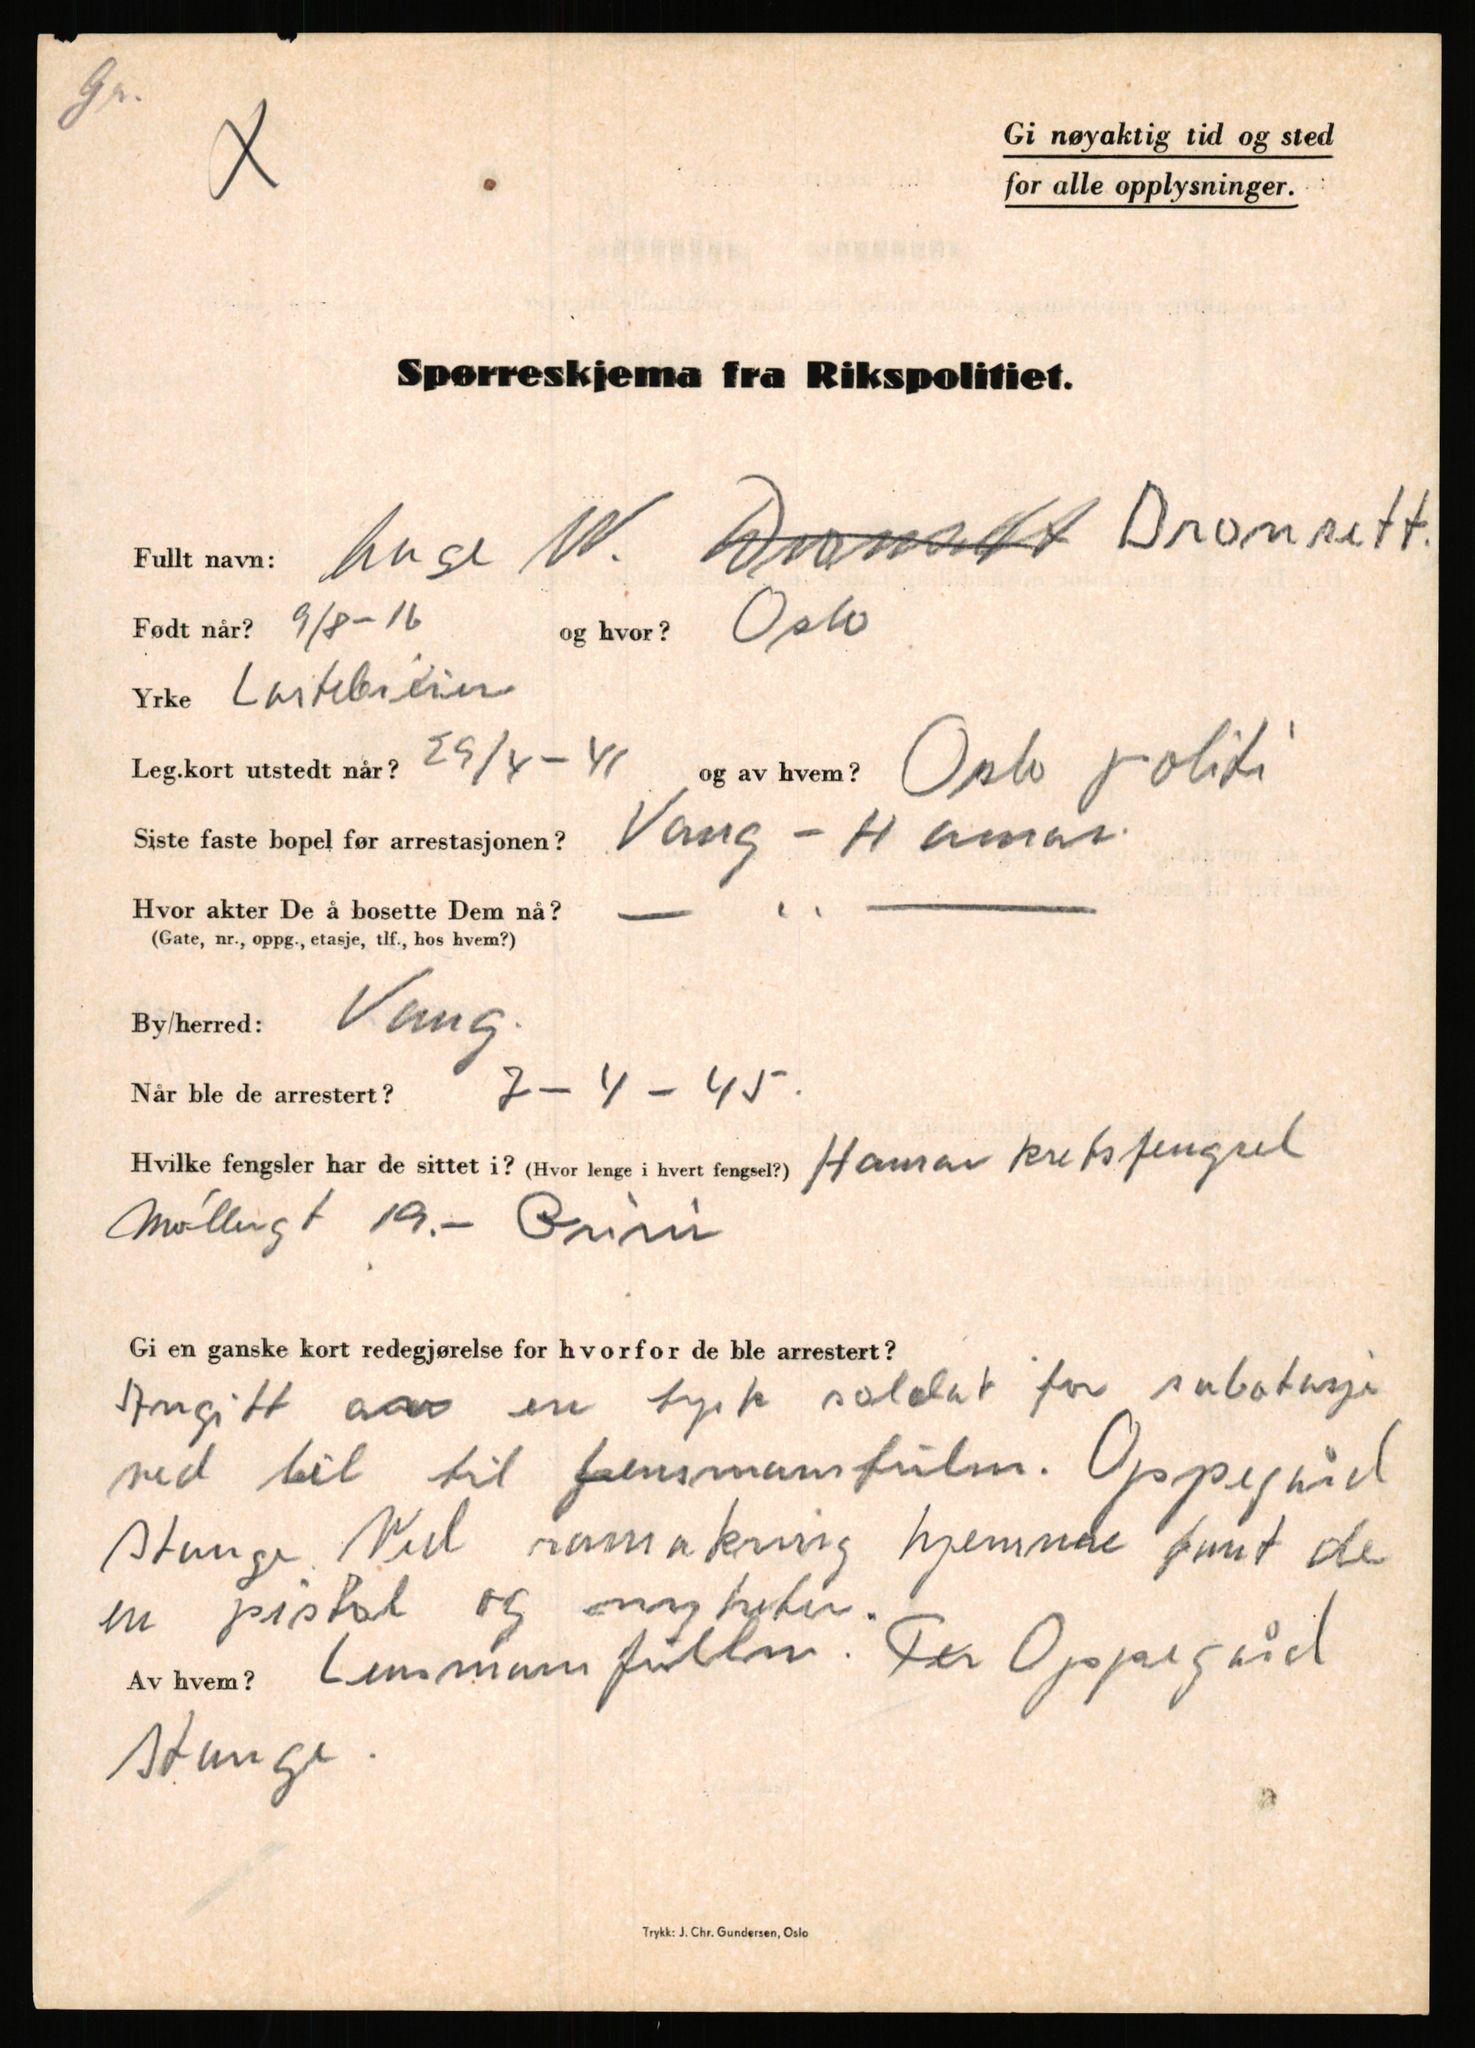 Gr.
X
Gi nøyaktig tid og sted
for alle opplysninger.
Spørreskjema fra Rikspolitiet.
Fullt navn: W. Dronsett Dronsett.
Født når? 9/8-16 og hvor? Oslo
Yrke Lastebileier
Leg.kort utstedt når? 29/4-41 og av hvem? Oslo politi
Siste faste bopel før arrestasjonen? Vang - Hamar.
Hvor akter De å bosette Dem nå? — " —
(Gate, nr., oppg., etasje, tlf., hos hvem?)
By/herred: Vang.
Når ble de arrestert? 7-4-45.
Hvilke fengsler har de sittet i? (Hvor lenge i hvert fengsel?) Hamar kretsfengsel
Møllergt 19.- Grini
Gi en ganske kort redegjørelse for hvorfor de ble arrestert?
Angitt av en tysk soldat for sabotasje
ved bil til lensmansfullm. Oppegård
Stange. Ved ransakning hjemme fant de
en pistol og nyheter.
Av hvem? Lensmansfullm. Fer Oppegård
Stange.
Trykk: J. Chr. Gundersen, Oslo